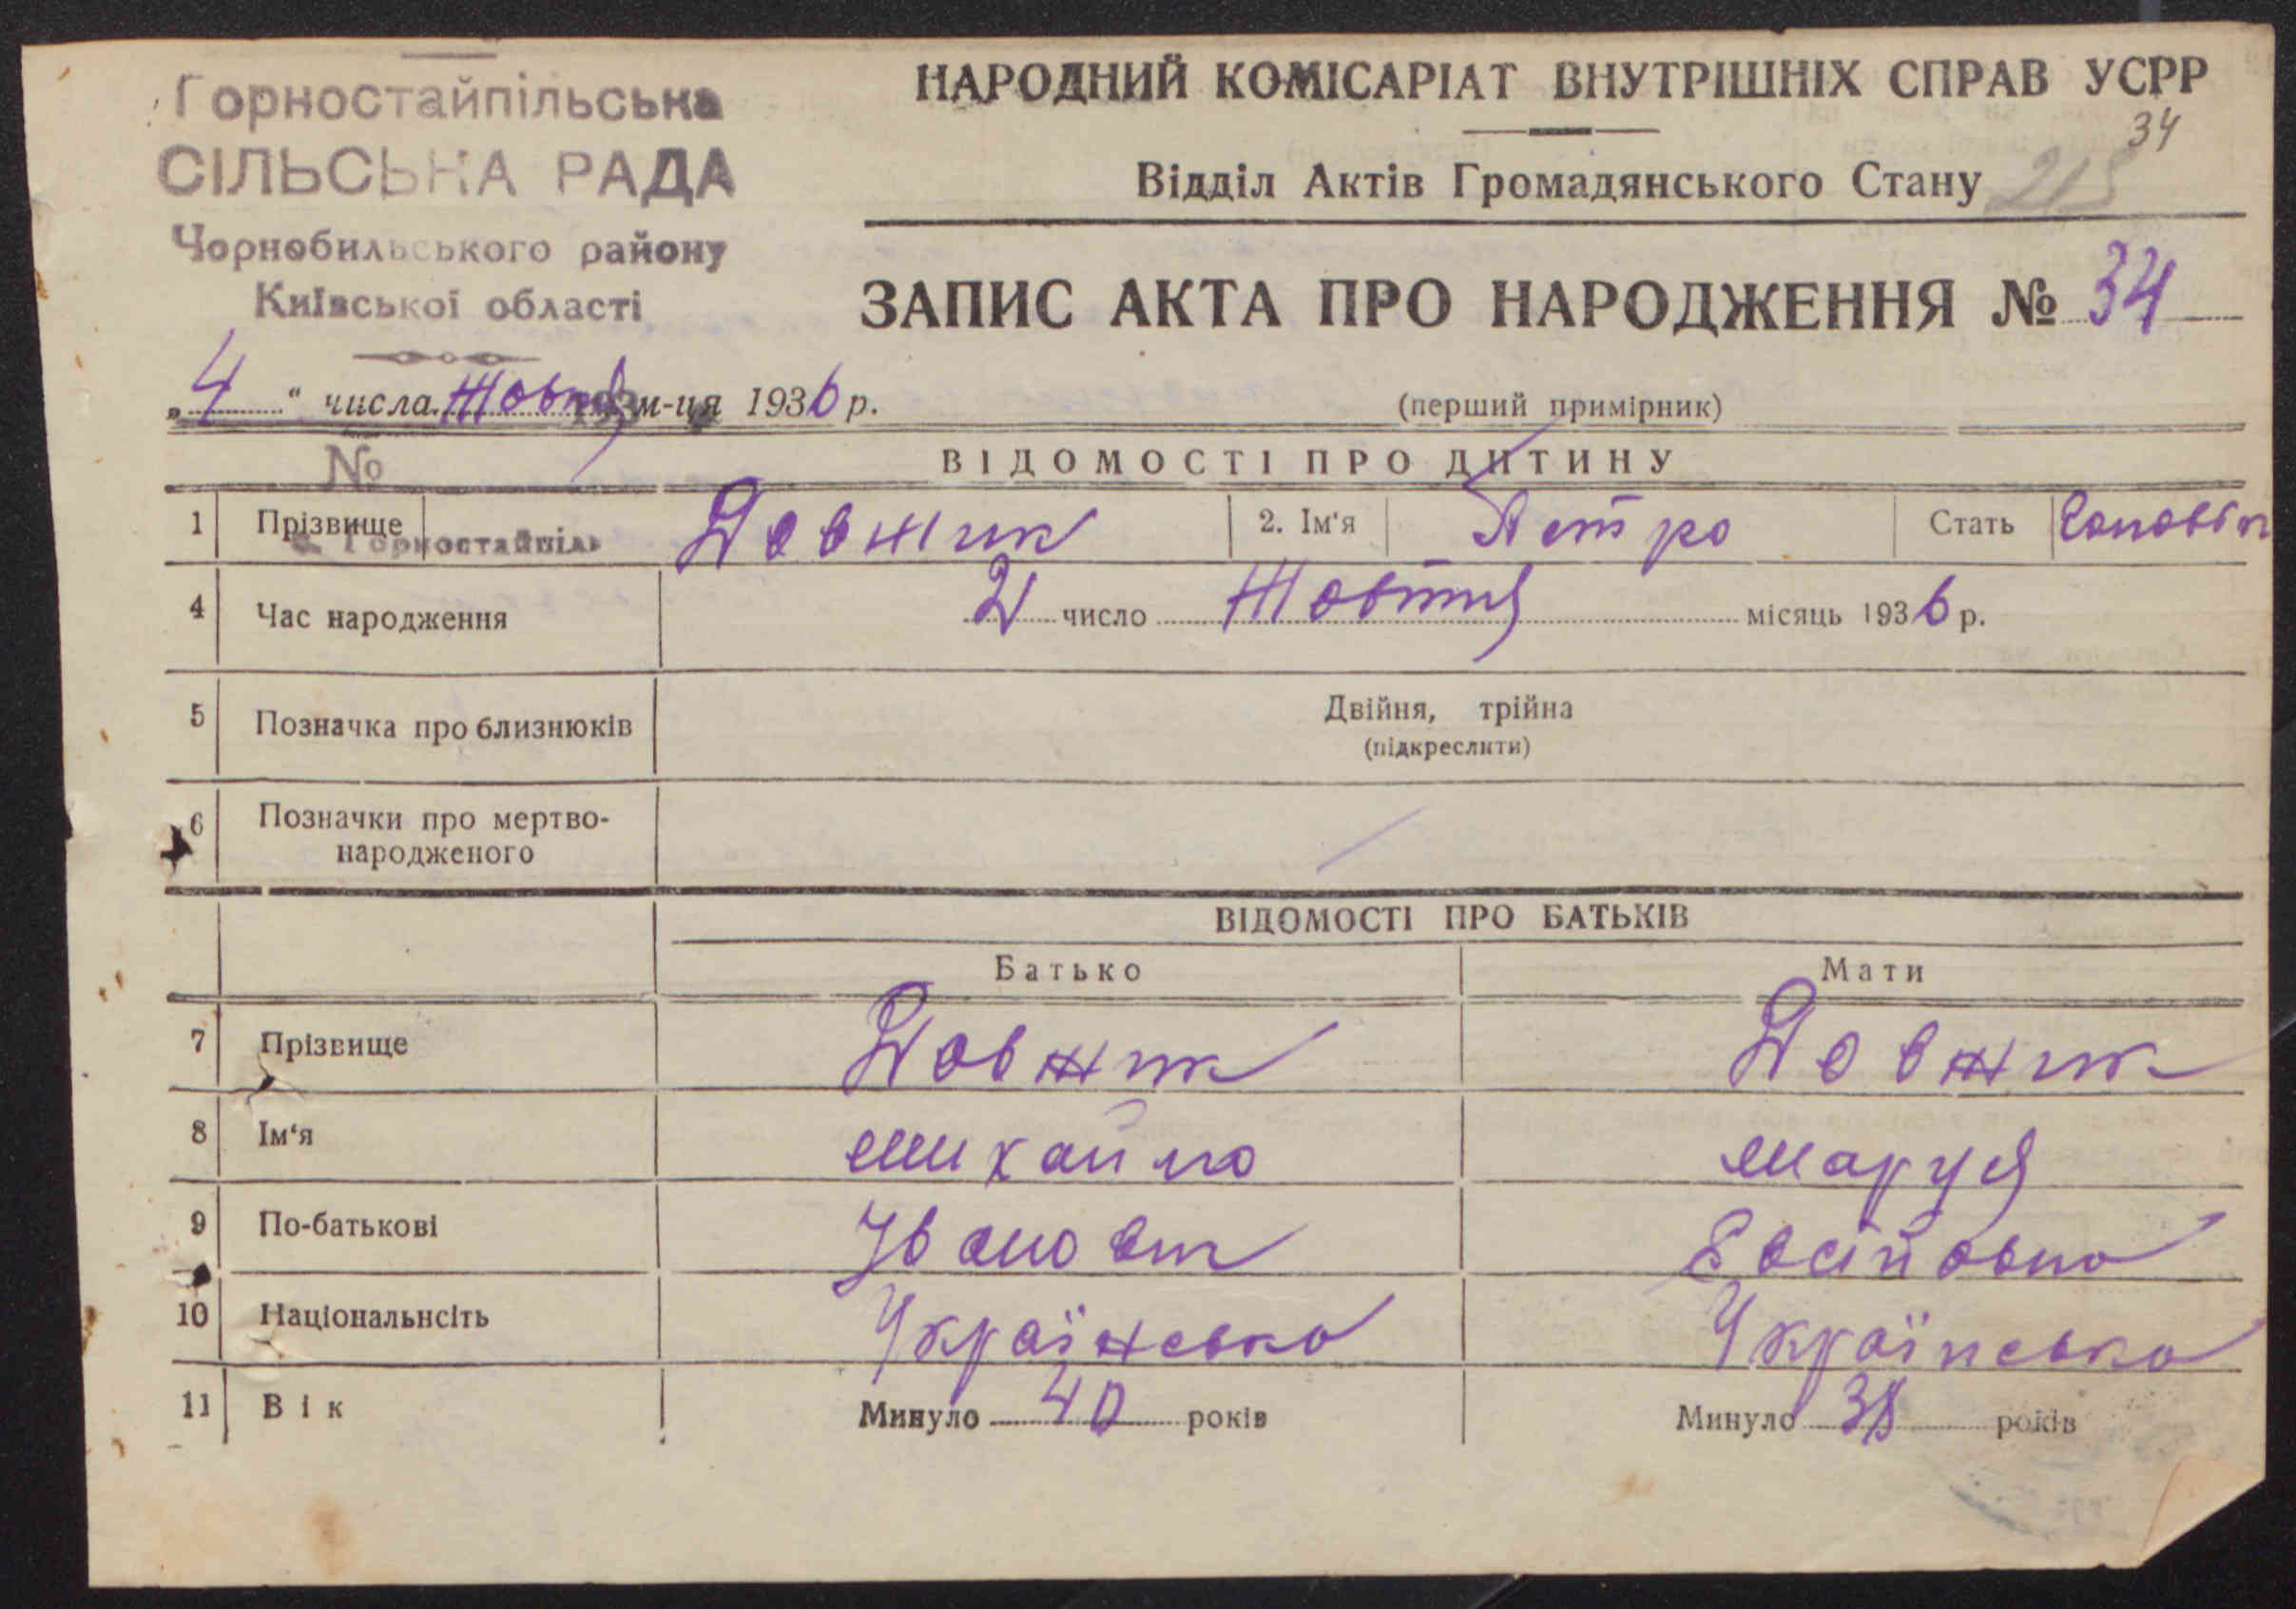 Горностайпільська
СІЛЬСЬКА РАДА
Чорнобильського району
Київської області
НАРОДНИЙ КОМІСАРІАТ ВНУТРІШНІХ СПРАВ УСРР
34
Відділ Актів Громадянського Стану 215
ЗАПИС АКТА ПРО НАРОДЖЕННЯ № 34
„4“ числа Жовтня м-ця 1936 р.
(перший примірник)
№
ВІДОМОСТІ ПРО ДИТИНУ
1 Прізвище Довжик 2. Ім'я Петро Стать
с. Горностайпіль
4 Час народження 2 число Жовтня місяць 1936 р.
5 Позначка про близнюків Двійня, трійна
(підкреслити)
6 Позначки про мертво-
народженого
ВІДОМОСТІ ПРО БАТЬКІВ
Батько Мати
7 Прізвище Довжик Довжик
8 Ім'я Михайло Маруся
9 По-батькові Іванович
10 Національнсіть Українсько Українсько
11 Вік Минуло 40 років Минуло 38 років